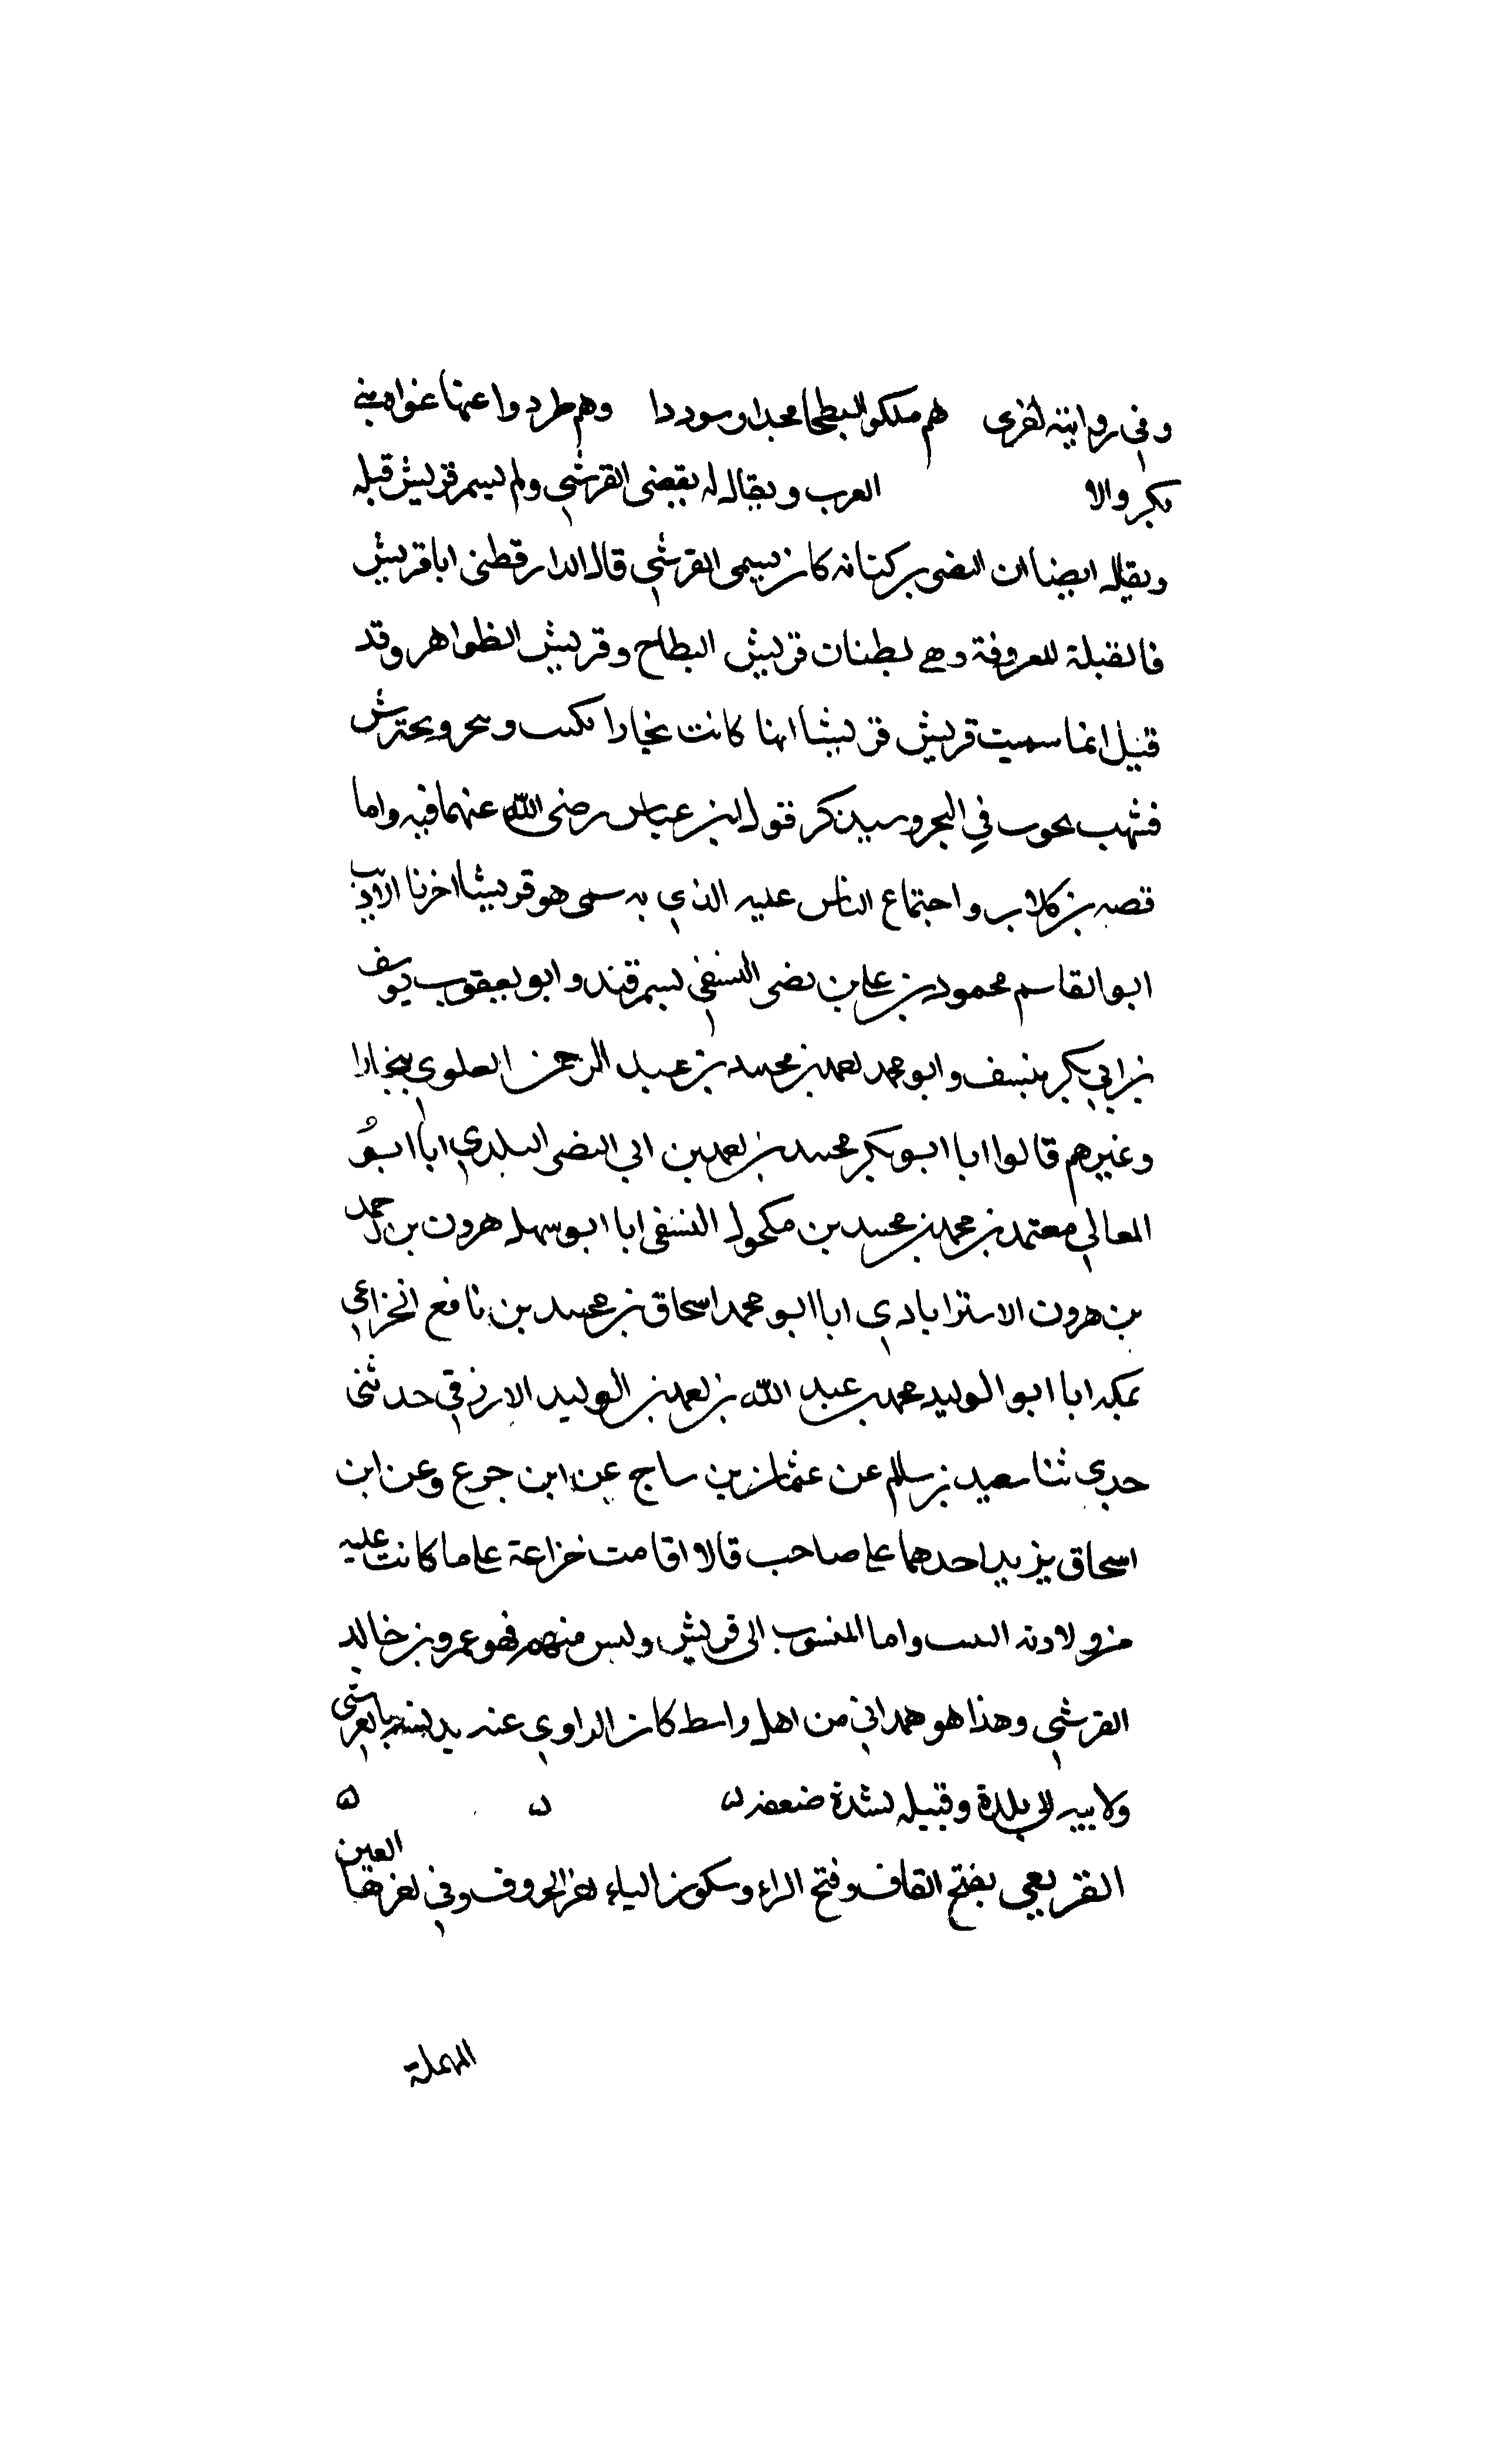 وفي رواية اخرى هم ملكوا البطحا مجدا وسوددا وهم طردوا عنها غواه بني
بكر والا العرب ويقال له يقصى القرشي ولم يسم قريش قبله
ويقال ايضا ان النضر بن كنانه كان يسمى القرشي قال الدارقطني اباقريش
فالقبلة المعروفة وهي بطنان قريش البطاح وقريش الظواهر وقد
قيل انما سميت قريش قريشا انها كانت تجارا تكسب وتتجر وتحترش
فشبهت بحوت في البحر وسيذكر قول ابن عباس رضى الله عنهما فيه واما
قصه بن كلاب واجتماع الناس عليه الذي به سمى هو قريشا اخرنا الاديب
ابو القاسم محمود بن علي بن نصر النسفي بسمرقند وابو يعقوب يوسف
بن ابي بكر بنسف وابو محمد احمد بن محمد بن عبد الرحمن العلوي ببخارا
وغيرهم قالوا ابا ابو بكر محمد بن احمد بن ابي النصر البلدي ابا ابو
المعالي معتمد بن محمد بن محمد بن مكحول النسفي ابا ابو سهل هرون بن احمد
بن هرون الاسترابادي ابا ابو محمد اسحاق بن محمد بن نافع الخزاعي
بمكه ابا ابو الوليد محمد بن عبد الله بن احمد بن الوليد الازرقي حدثني
جدي ثنا سعيد بن سالم عن عثمان بن ساج عن ابن جريج وعن ابن
اسحاق يزيد احدهما على صاحب قالا اقامت خزاعة على ما كانت عليه
من ولادته البيت واما المنسوب الى قريش وليس منهم فهو عمرو بن خالد
القرشي وهذا هو همداني من اهل واسط كان الراوي عنه يدلسه بالقرشي
ولا يبيه الى بلدة وقبيله لشدة ضعفه ه ه ه
القريعي بفتح القاف وفتح الراء وسكون الياء اخر الحروف وفي اخرها العين
المهملة